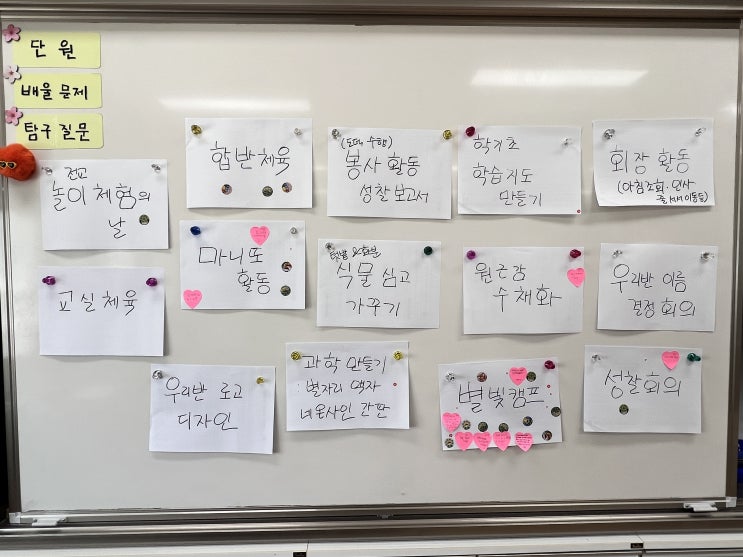 단 원
배울 문제
탐구 질문
합반체육
(도덕 수행)
봉사 활동
성찰 보고서
학기초
학습지도
만들기
회장 활동
(아침조회·인사
전교
놀이 체험의
날
마니또
활동
텃밭 & 화분
식물 심고
가꾸기
원근감
수채화
우리반 이름
결정 회의
교실체육
우리반 로고
디자인
과학 만들기
별자리 액자
네온사인 간판
별빛캠프
성찰회의